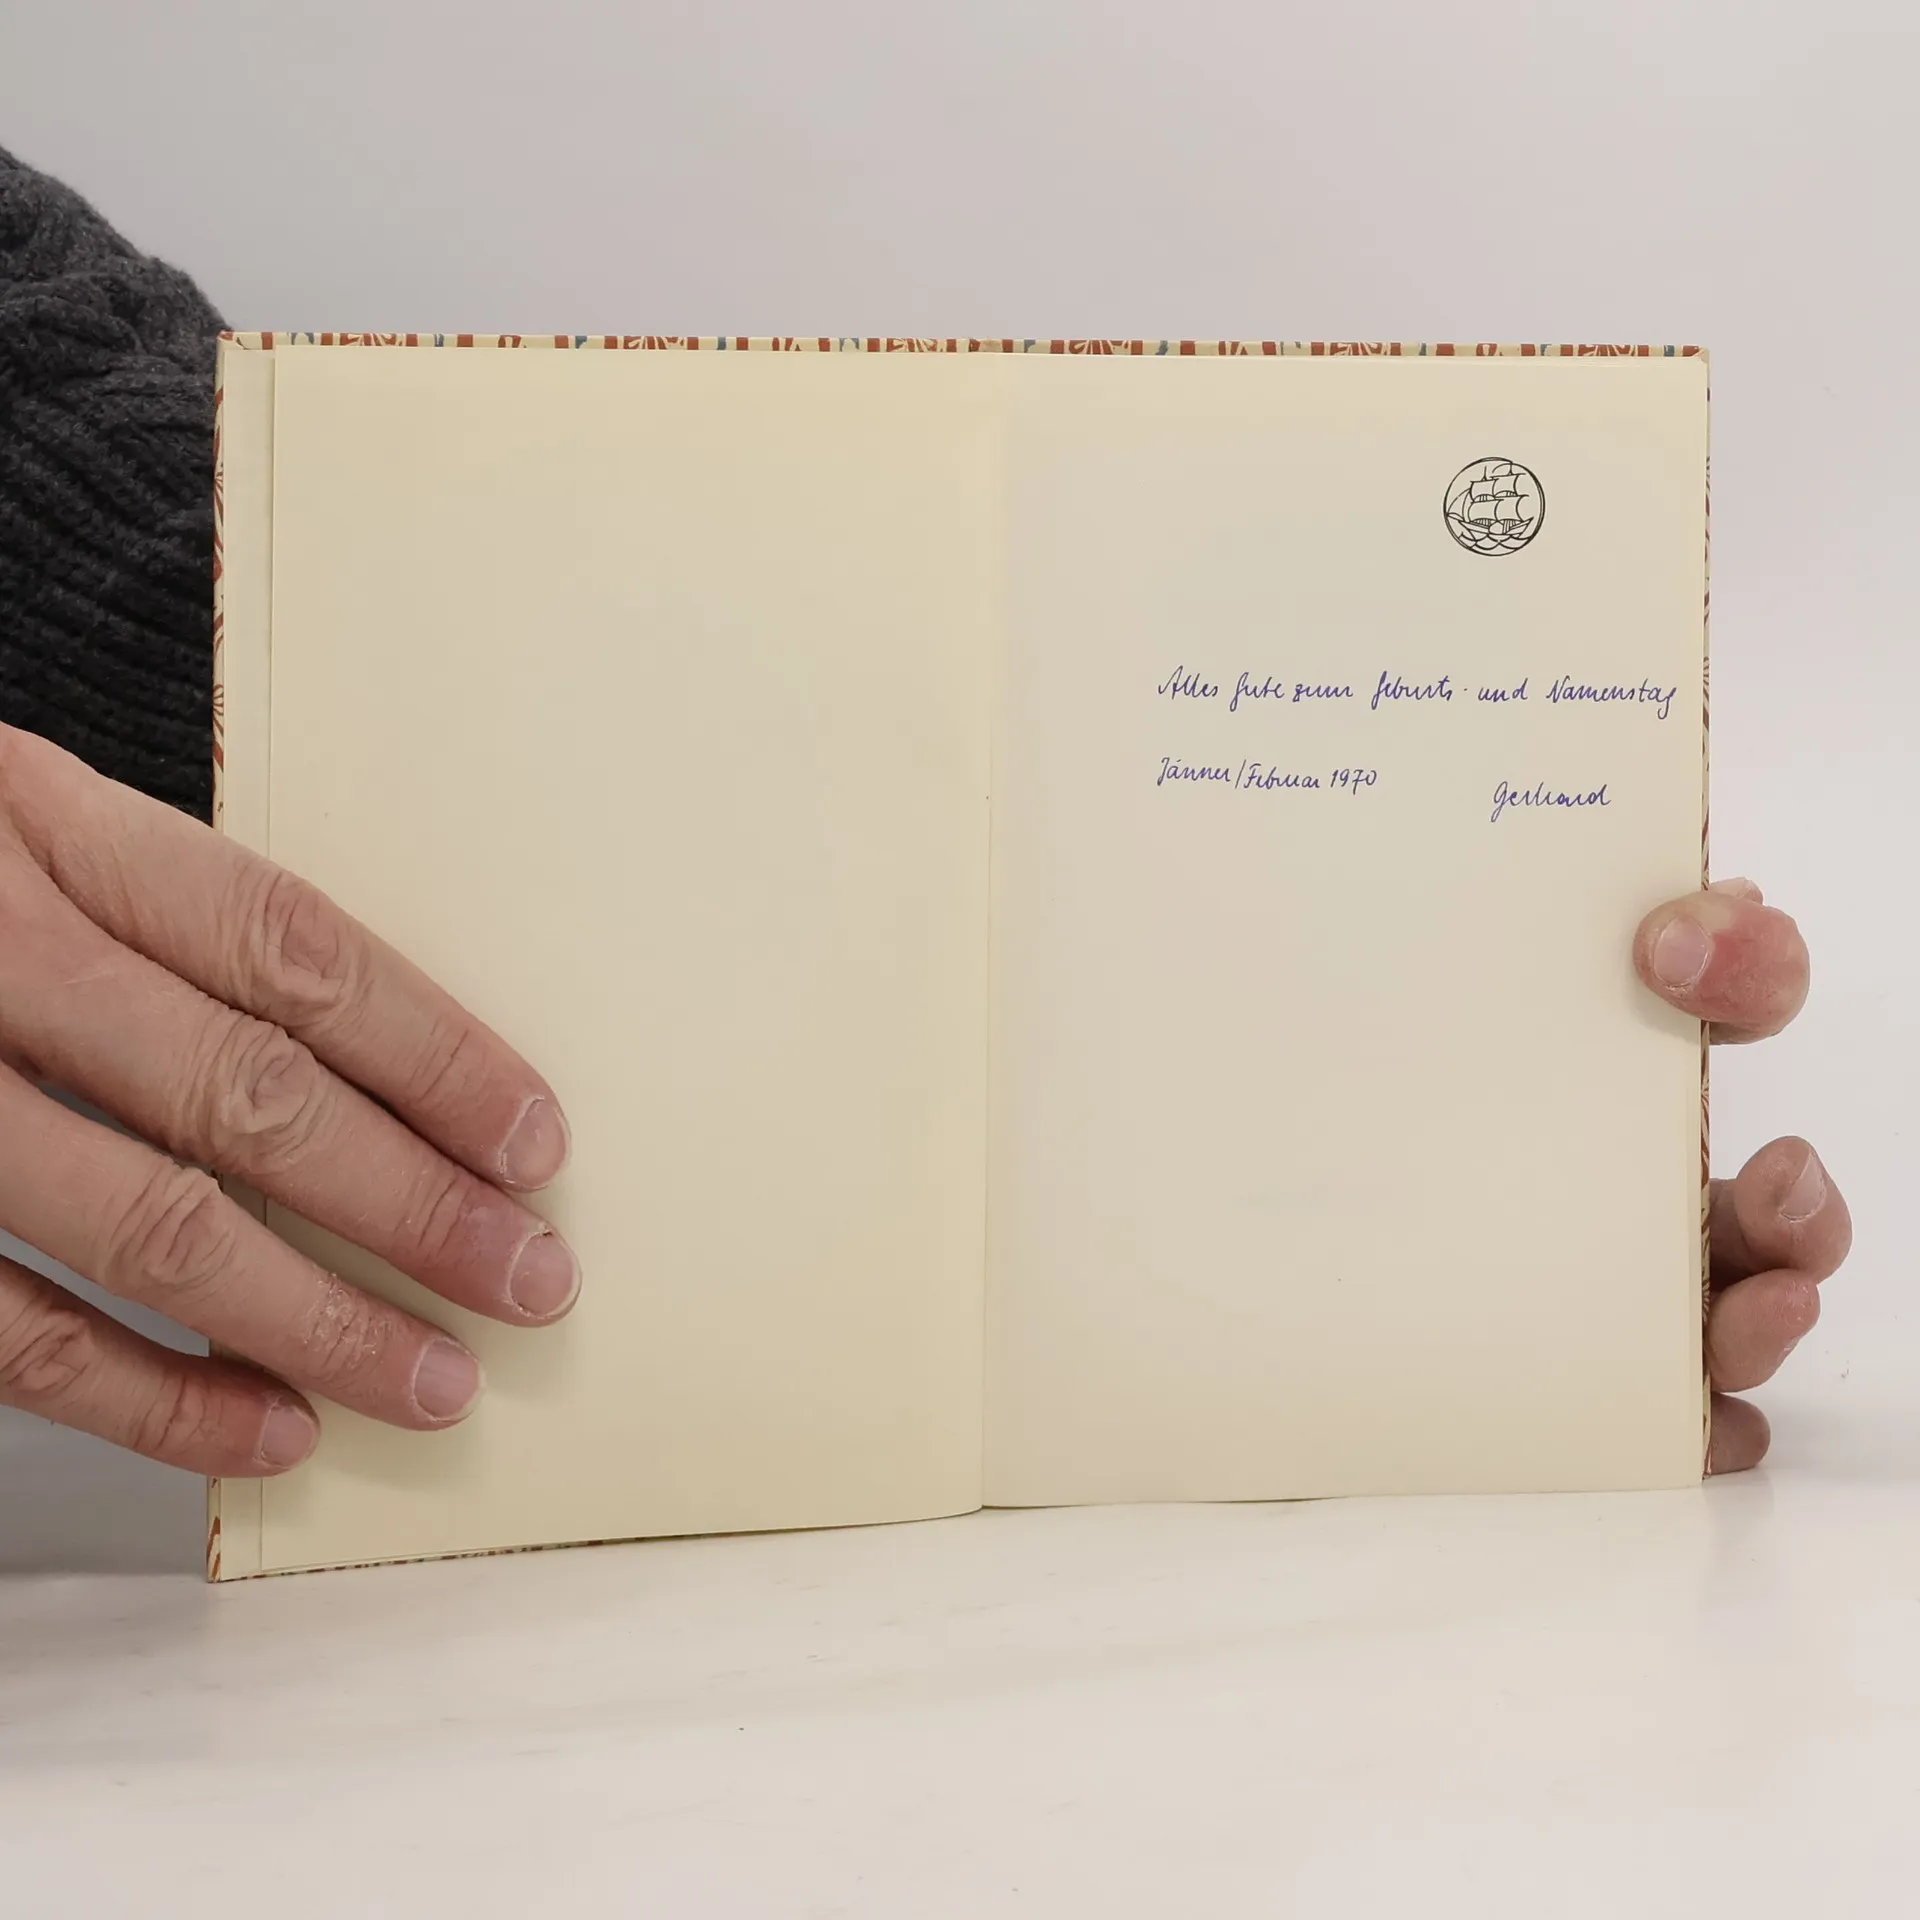 Alles Gute zum Geburts- und Namenstag
Jänner/Februar 1970
Gerhard